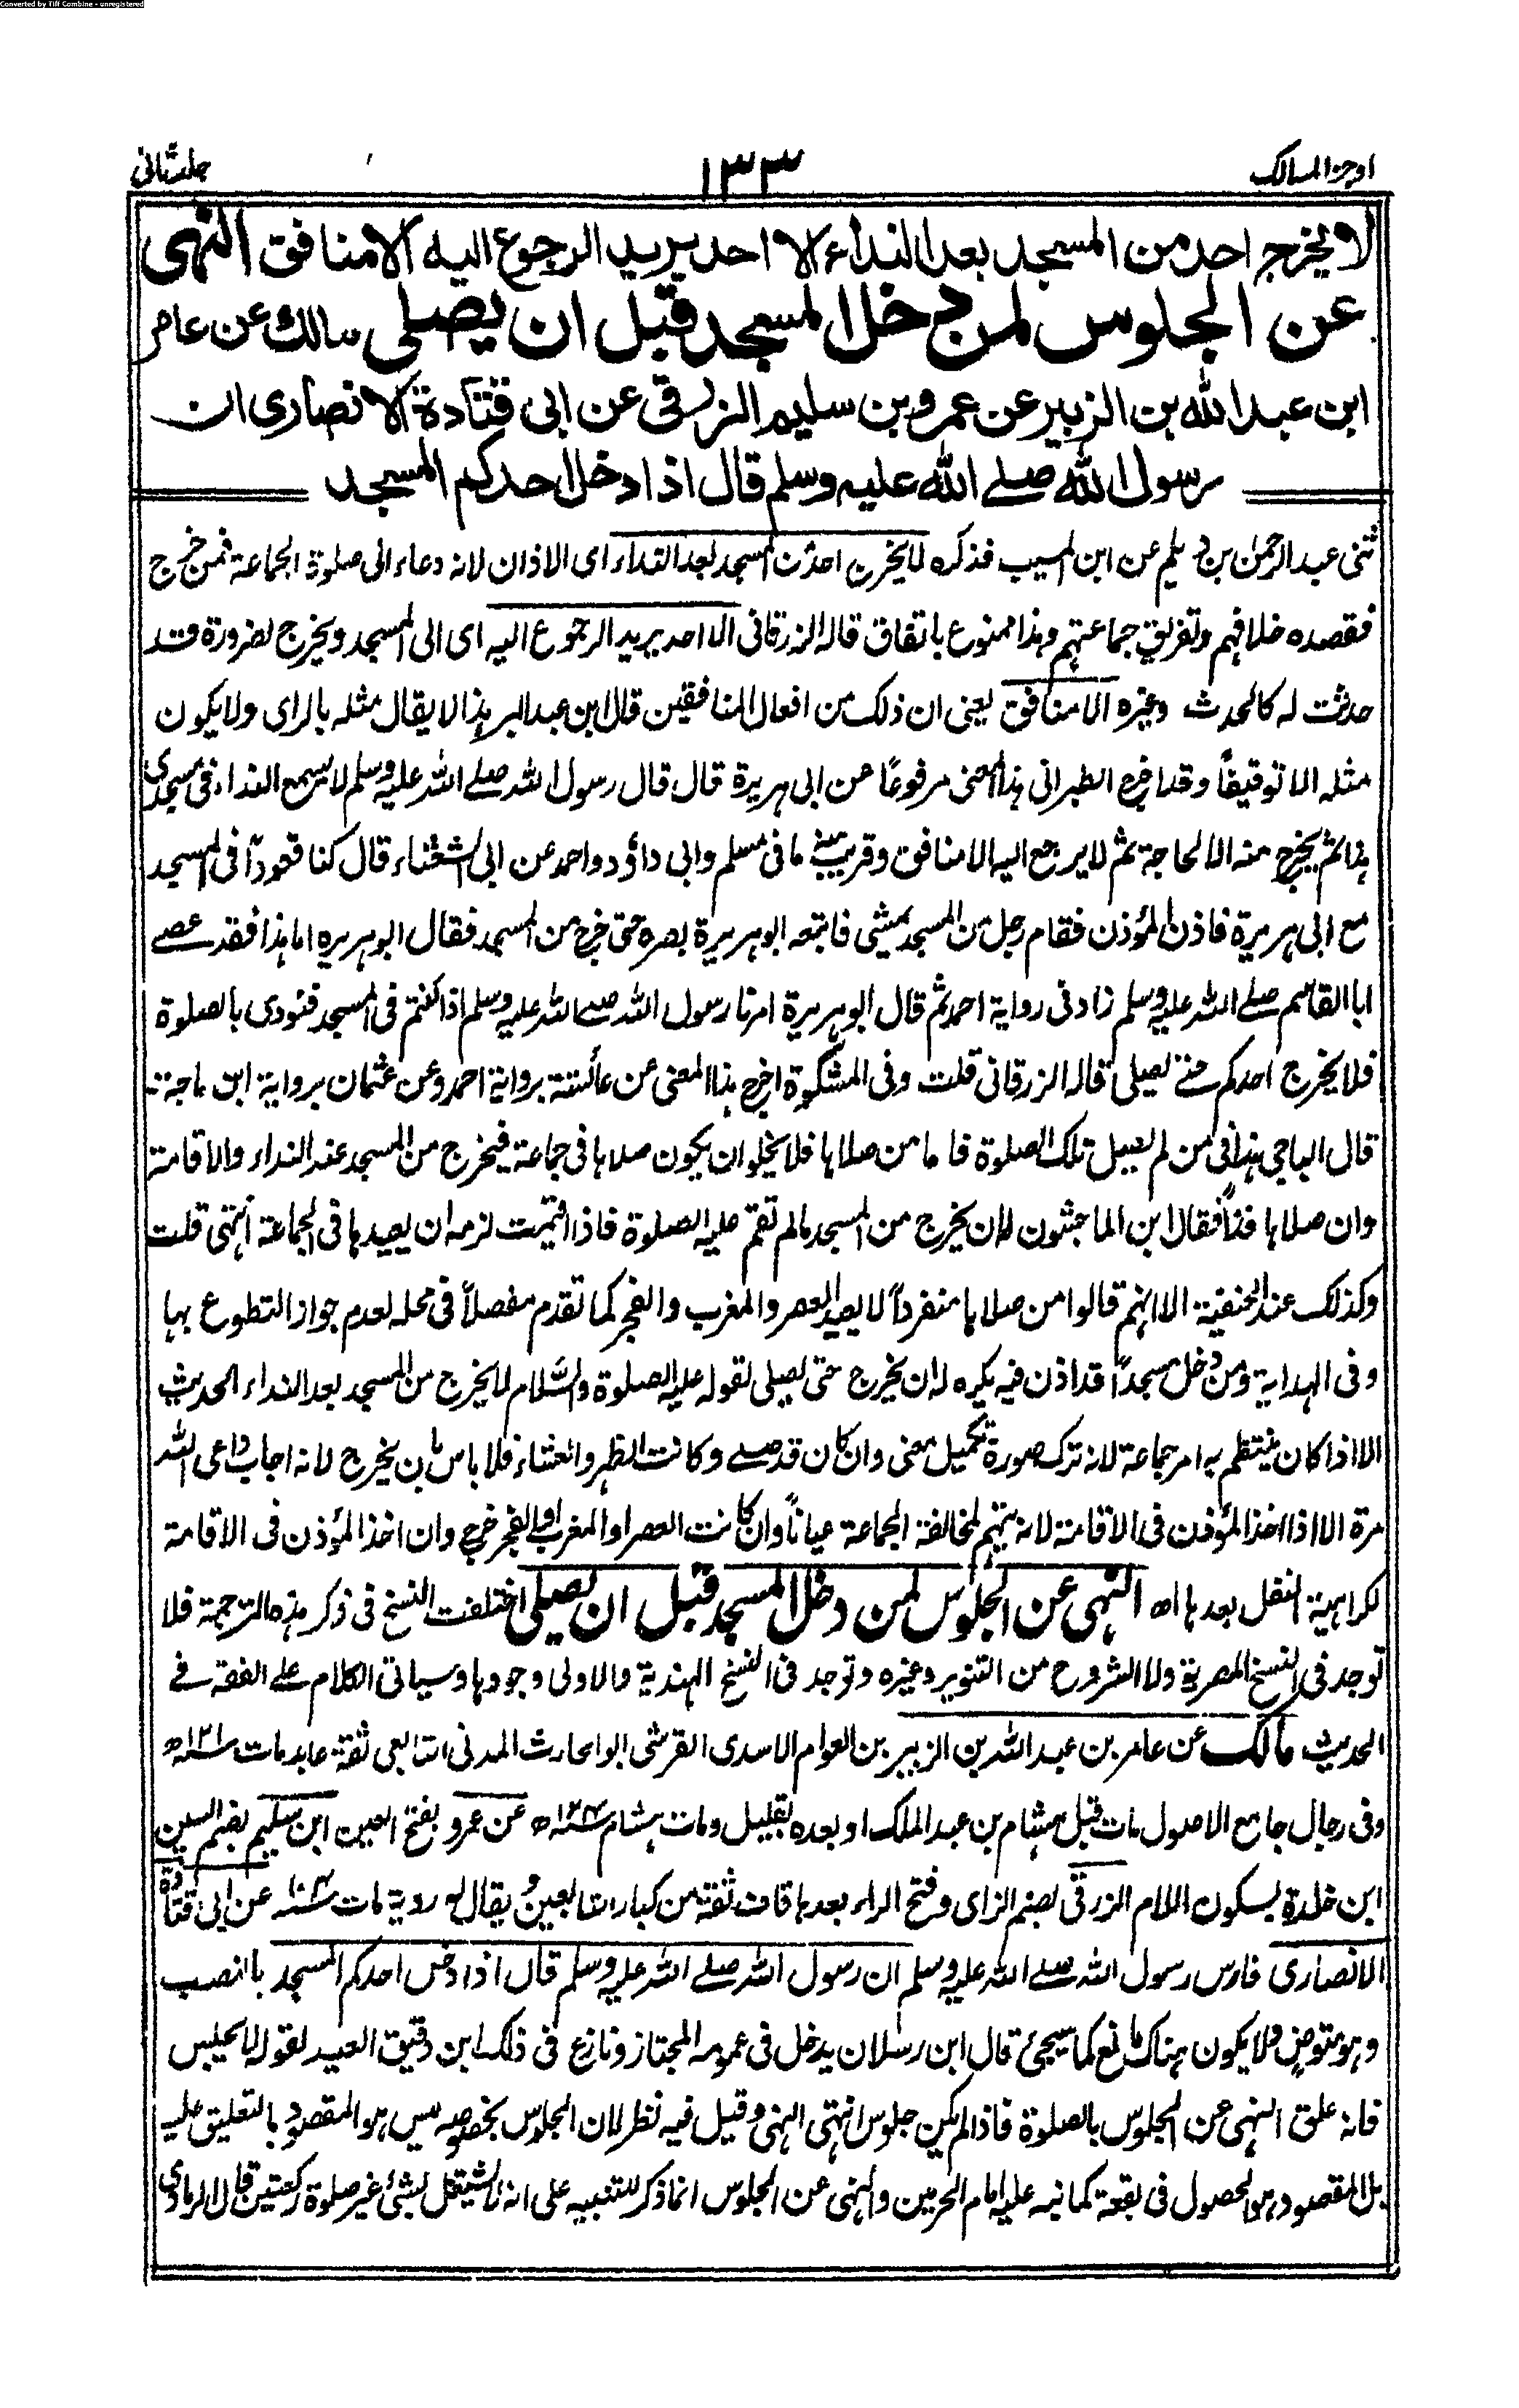 Converted by Tiff Combine - unregistered
اوجز المسالك ١٣٣ جلد ثانى
لا يخرج احد من المسجد بعد النداء الا احد يريد الرجوع اليه الا منافق النهى
عن الجلوس لمن دخل المسجد قبل ان يصلى مالك عن عامر
ابن عبد الله بن الزبير عن عمرو بن سليم الزرقى عن ابى قتادة الانصارى ان
رسول الله صلے الله عليه وسلم قال اذا دخل احدكم المسجد
ثنى عبد الرحمن بن عن ابن المسيب فذكره لا يخرج احد من المسجد بعد النداء اى الاذان لانه دعاء الى صلوة الجماعة فمن خرج
فقصده خلافهم وتفريق جماعتهم وهذا ممنوع باتفاق قاله الزرقانى الا احد يريد الرجوع اليه اى الى المسجد ويخرج لضرورة قد
حدثت له كالحدث وغيره الا منافق يعنى ان ذلك من افعال المنافقين قال ابن عبد البر هذا لا يقال مثله بالراى ولا يكون
مثله الا توقيفاً وقد اخرج الطبرانى هذا المعنى مرفوعًا عن ابى هريرة قال قال رسول الله صلے الله عليه وسلم لا يسمع النداء فى مسجدى
هذا ثم يخرج منه الا لحاجة ثم لا يرجع اليه الا منافق وقريب منه ما فى مسلم وابى داؤد واحمد عن ابى الشعثاء قال كنا قعوداً فى المسجد
مع ابى هريرة فاذن المؤذن فقام رجل من المسجد يمشى فاتبعه ابو هريرة بصره حتى خرج من المسجد فقال ابو هريره اما هذا فقد عصے
ابا القاسم صلے الله عليه وسلم زاد فى رواية احمد ثم قال ابو هريرة امرنا رسول الله صلے الله عليه وسلم اذا كنتم فى المسجد فنودى بالصلوة
فلا يخرج احدكم حتے يصلى قاله الزرقانى قلت وفى المشكوة اخرج هذا المعنى عن عائشة برواية احمد وعن عثمان برواية ابن ماجة
قال الباجى هذا فى من لم يصل تلك الصلوة فاما من صلاها فلا يخلو ان يكون صلاها فى جماعة فيخرج من المسجد عند النداء والاقامة
وان صلاها فذاً فقال ابن الماجشون له ان يخرج من المسجد مالم تقم عليه الصلوة فاذا اقيمت لزمه ان يعيدها فى الجماعة انتهى قلت
وكذلك عند الحنفية الا انهم قالوا من صلاها منفرداً لا يعيد العصر والمغرب والفجر كما تقدم مفصلاً فى محله لعدم جواز التطوع بها
وفى الهداية ومن دخل مسجداً قد اذن فيه يكره له ان يخرج حتى يصلى لقوله عليه الصلوة والسلام لا يخرج من المسجد بعد النداء الحديث
الا اذا كان ينتظم به امر جماعة لانه ترك صورة تكميل معنى وان كان قد صلے وكانت الظهر والعشاء فلا باس بان يخرج لانه اجاب داعى الله
مرة الا اذا اخذ المؤذن فى الاقامة لانه يتهم لمخالفة الجماعة عياناً وان كانت العصر او المغرب او الفجر خرج وان اخذ المؤذن فى الاقامة
لكراهية النفل بعدها اھ النهى عن الجلوس لمن دخل المسجد قبل ان يصلى اختلفت النسخ فى ذكر هذه الترجمة فلا
توجد فى النسخ المصرية ولا الشروح من التنوير وغيره وتوجد فى النسخ الهندية والاولى وجودها وسياتى الكلام علے الفقه فے
الحديث مالك عن عامر بن عبد الله بن الزبير بن العوام الاسدى القرشى ابو الحارث المدنى التابعى ثقة عابد مات سنة ١٢١ھ
وفى رجال جامع الاصول مات قبل هشام بن عبد الملك او بعده بقليل ومات هشام سنة ١٢٤ھ عن عمرو بفتح العين ابن سليم بضم السين
ابن خلدة بسكون اللام الزرقى بضم الزاى وفتح الراء بعدها قاف ثقة من كبار التابعين يقال له روية مات سنة ١٠٤ عن ابى قتادة
الانصارى فارس رسول الله صلے الله عليه وسلم ان رسول الله صلے الله عليه وسلم قال اذا دخل احدكم المسجد بالنصب
وهو متوضٍ ولا يكون هناك مانع كما سيجئ قال ابن رسلان يدخل فى عمومه المجتاز ونازع فى ذلك ابن دقيق العيد لقوله لا يجلس
فانه علق النهى عن الجلوس بالصلوة فاذا لم يكن جلوس انتهى النهى وقيل فيه نظر لان الجلوس بخصوصه ليس هو المقصود بالتعليق عليه
بل المقصود هو الحصول فى بقعة كما نبه عليه امام الحرمين والنهى عن الجلوس انما ذكر للتنبيه على انه لا يشتغل بشئ غير صلوة ركعتين قال